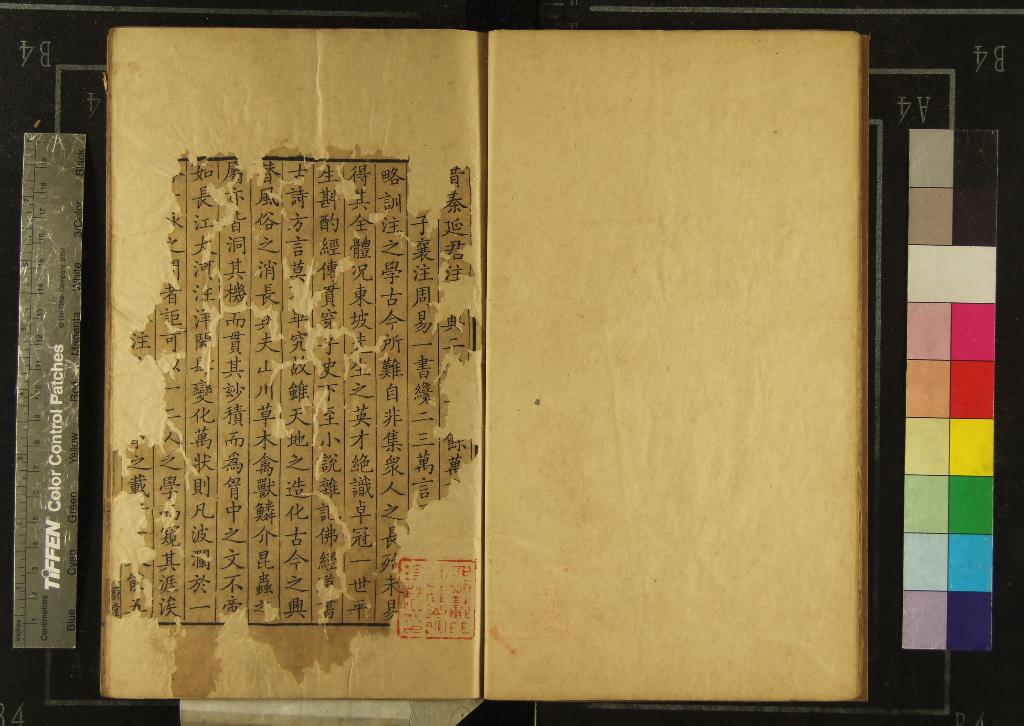 昔秦延君注 典二 餘萬
子襄注周易一書纔二三萬言
略訓注之學古今所難自非集衆人之長殆未易
得其全體况東坡先生之英才絶識卓冠一世平
生斟酌經傳貫穿子史下至小說雜記佛經道書
古詩方言莫不畢究故雖天地之造化古今之興
替風俗之消長與夫山川草木禽獸鱗介昆蟲之
屬亦皆洞其機而貫其妙積而爲胷中之文不啻
如長江大河汪洋閎肆變化萬狀則凡波瀾於一
詠之間者詎可以一二人之學而窺其涯涘
注 之載 餘五
TIFFEN Color Control Patches
© The Tiffen Company, 2007
Inches
Centimetres
Blue
Cyan
Green
Yellow
Red
Magenta
White
3/Color
Black
B4
A4
B4